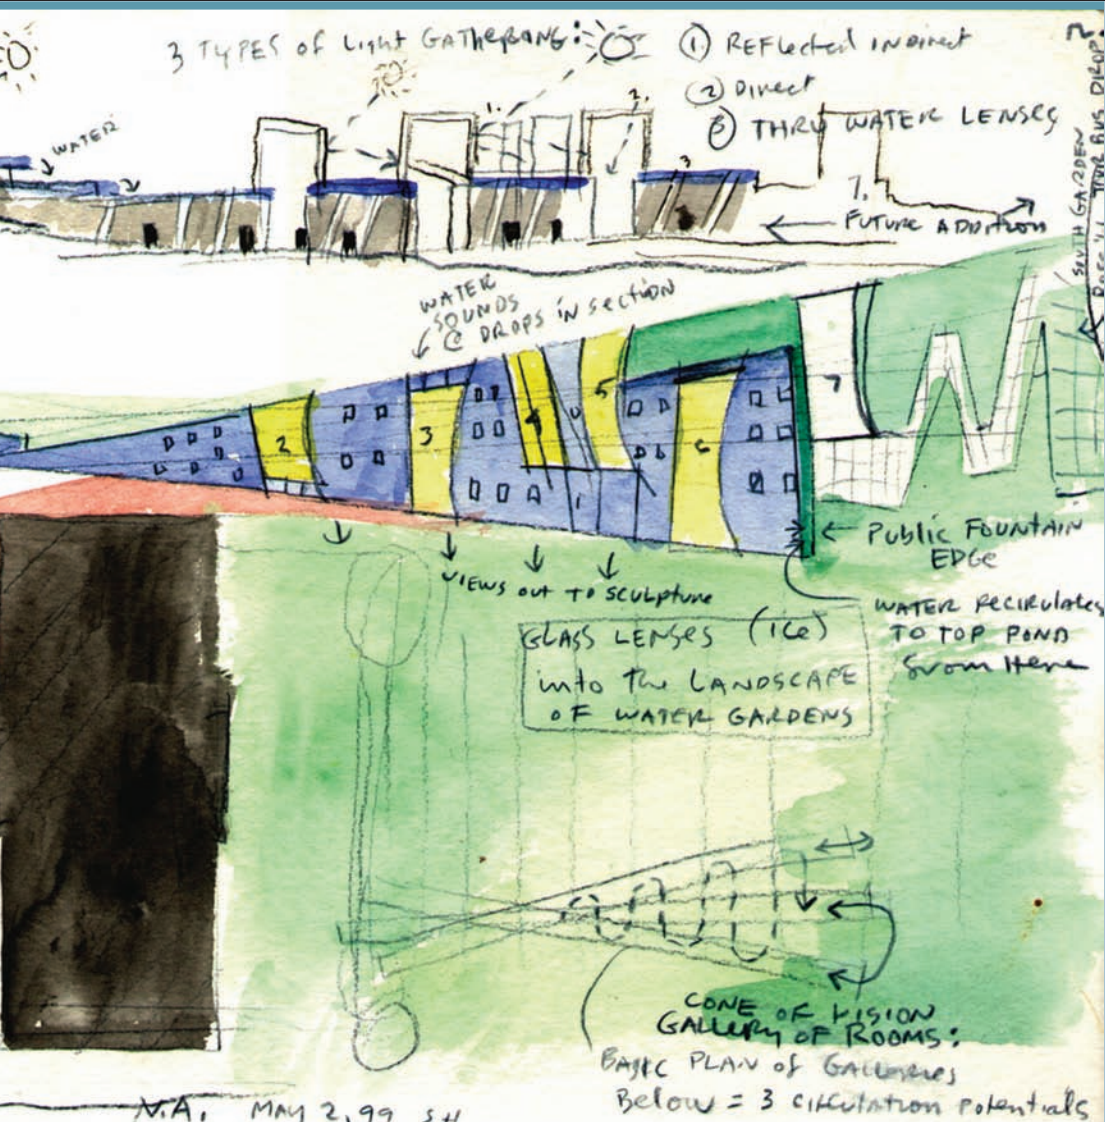 3 TYPES of Light GATHERING:
① REFLECTED INDIRECT
② DIRECT
③ THRU WATER LENSES
WATER
1.
2.
3
7.
FUTURE ADDITION
SOUTH GARDEN
BUS DROP
WATER
SOUNDS
@ DROPS IN SECTION
2
3
4
5
6
7
Public FOUNTAIN
EDGE
VIEWS OUT TO SCULPTURE
WATER RECIRCULATES
TO TOP POND
from Here
GLASS LENSES (ICE)
into The LANDSCAPE
OF WATER GARDENS
CONE OF VISION
GALLERY OF ROOMS:
BASIC PLAN of GALLERIES
Below = 3 CIRCULATION potentials
N.A. MAY 2, 99 SH